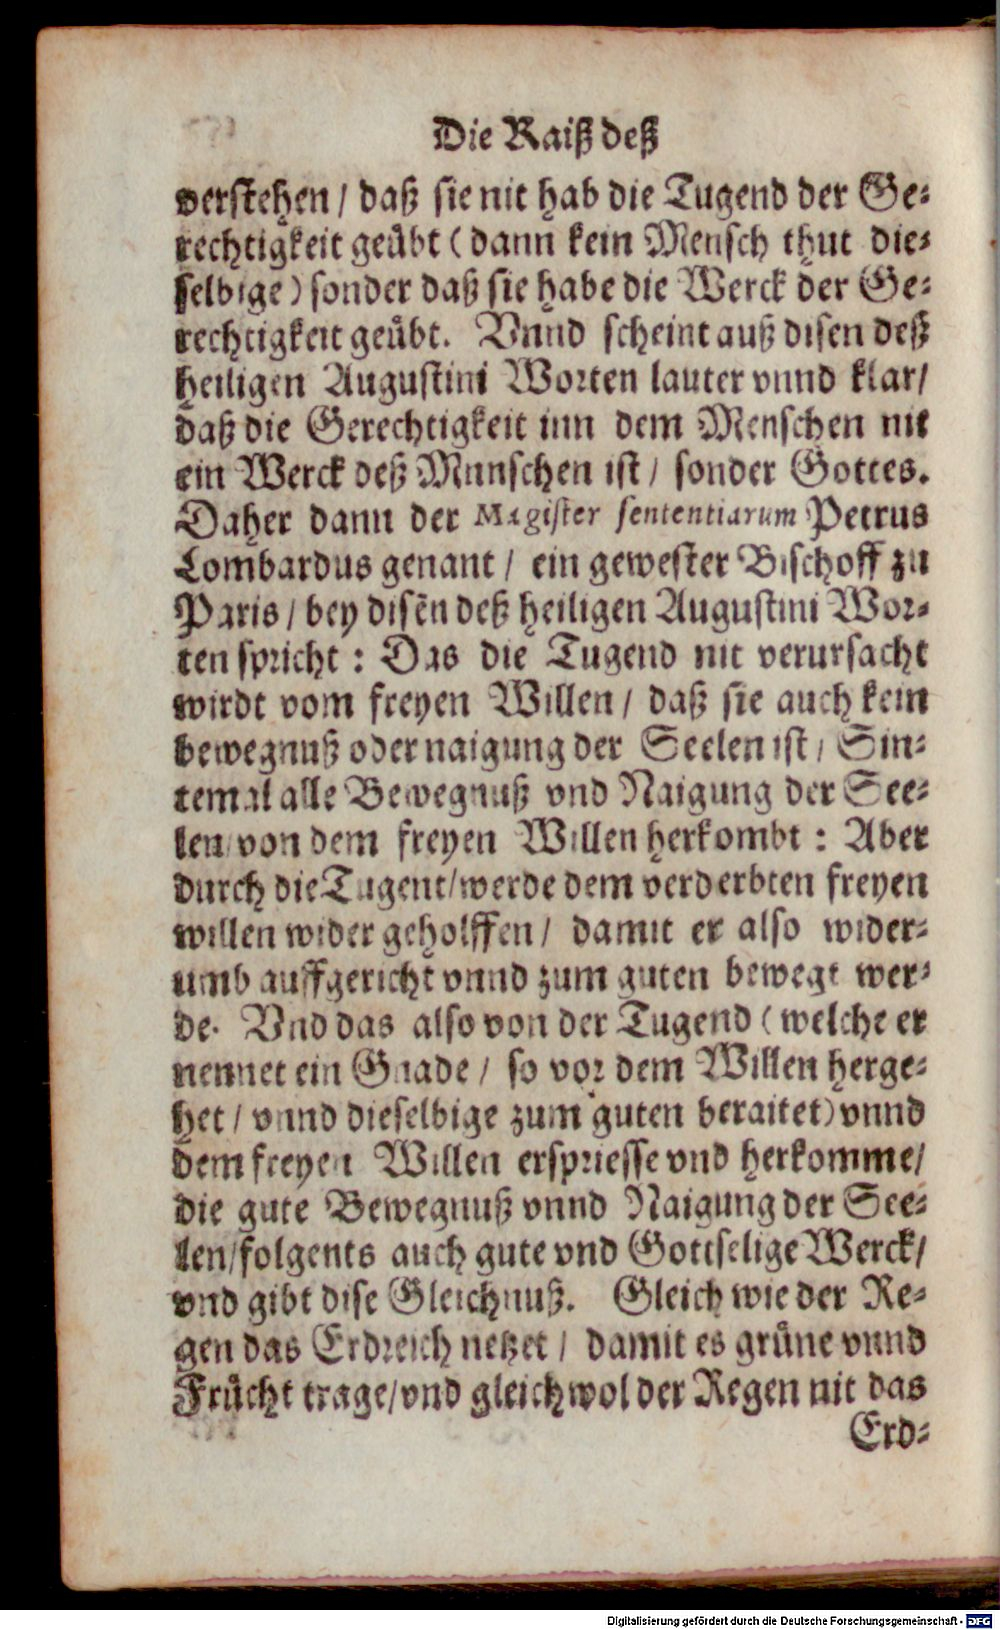 Die Raiß deß
verstehen / daß sie nit hab die Tugend der Ge-
rechtigkeit geübt ( dann kein Mensch thut die-
selbige ) sonder daß sie habe die Werck der Ge-
rechtigkeit geübt. Vnnd scheint auß disen deß
heiligen Augustini Worten lauter vnnd klar /
daß die Gerechtigkeit inn dem Menschen nit
ein Werck deß Mnnschen ist / sonder Gottes.
Daher dann der Magister sententiarum Petrus
Lombardus genant / ein gewester Bischoff zu
Paris / bey disẽn deß heiligen Augustini Wor-
ten spricht : Das die Tugend nit verursacht
wirdt vom freyen Willen / daß sie auch kein
bewegnuß oder naigung der Seelen ist / Sin-
temal alle Bewegnuß vnd Naigung der See-
len / von dem freyen Willen herkombt : Aber
durch die Tugent / werde dem verderbten freyen
willen wider geholffen / damit er also wider-
umb auffgericht vnnd zum guten bewegt wer-
de. Vnd das also von der Tugend ( welche er
nennet ein Gnade / so vor dem Willen herge-
het / vnnd dieselbige zum guten beraitet ) vnnd
dem freyen Willen erspriesse vnd herkomme /
die gute Bewegnuß vnnd Naigung der See-
len / folgents auch gute vnd Gottselige Werck /
vnd gibt dise Gleichnuß. Gleich wie der Re-
gen das Erdreich netzet / damit es grüne vnnd
Frücht trage / vnd gleichwol der Regen nit das
Erd-
Digitalisierung gefördert durch die Deutsche Forschungsgemeinschaft - DFG